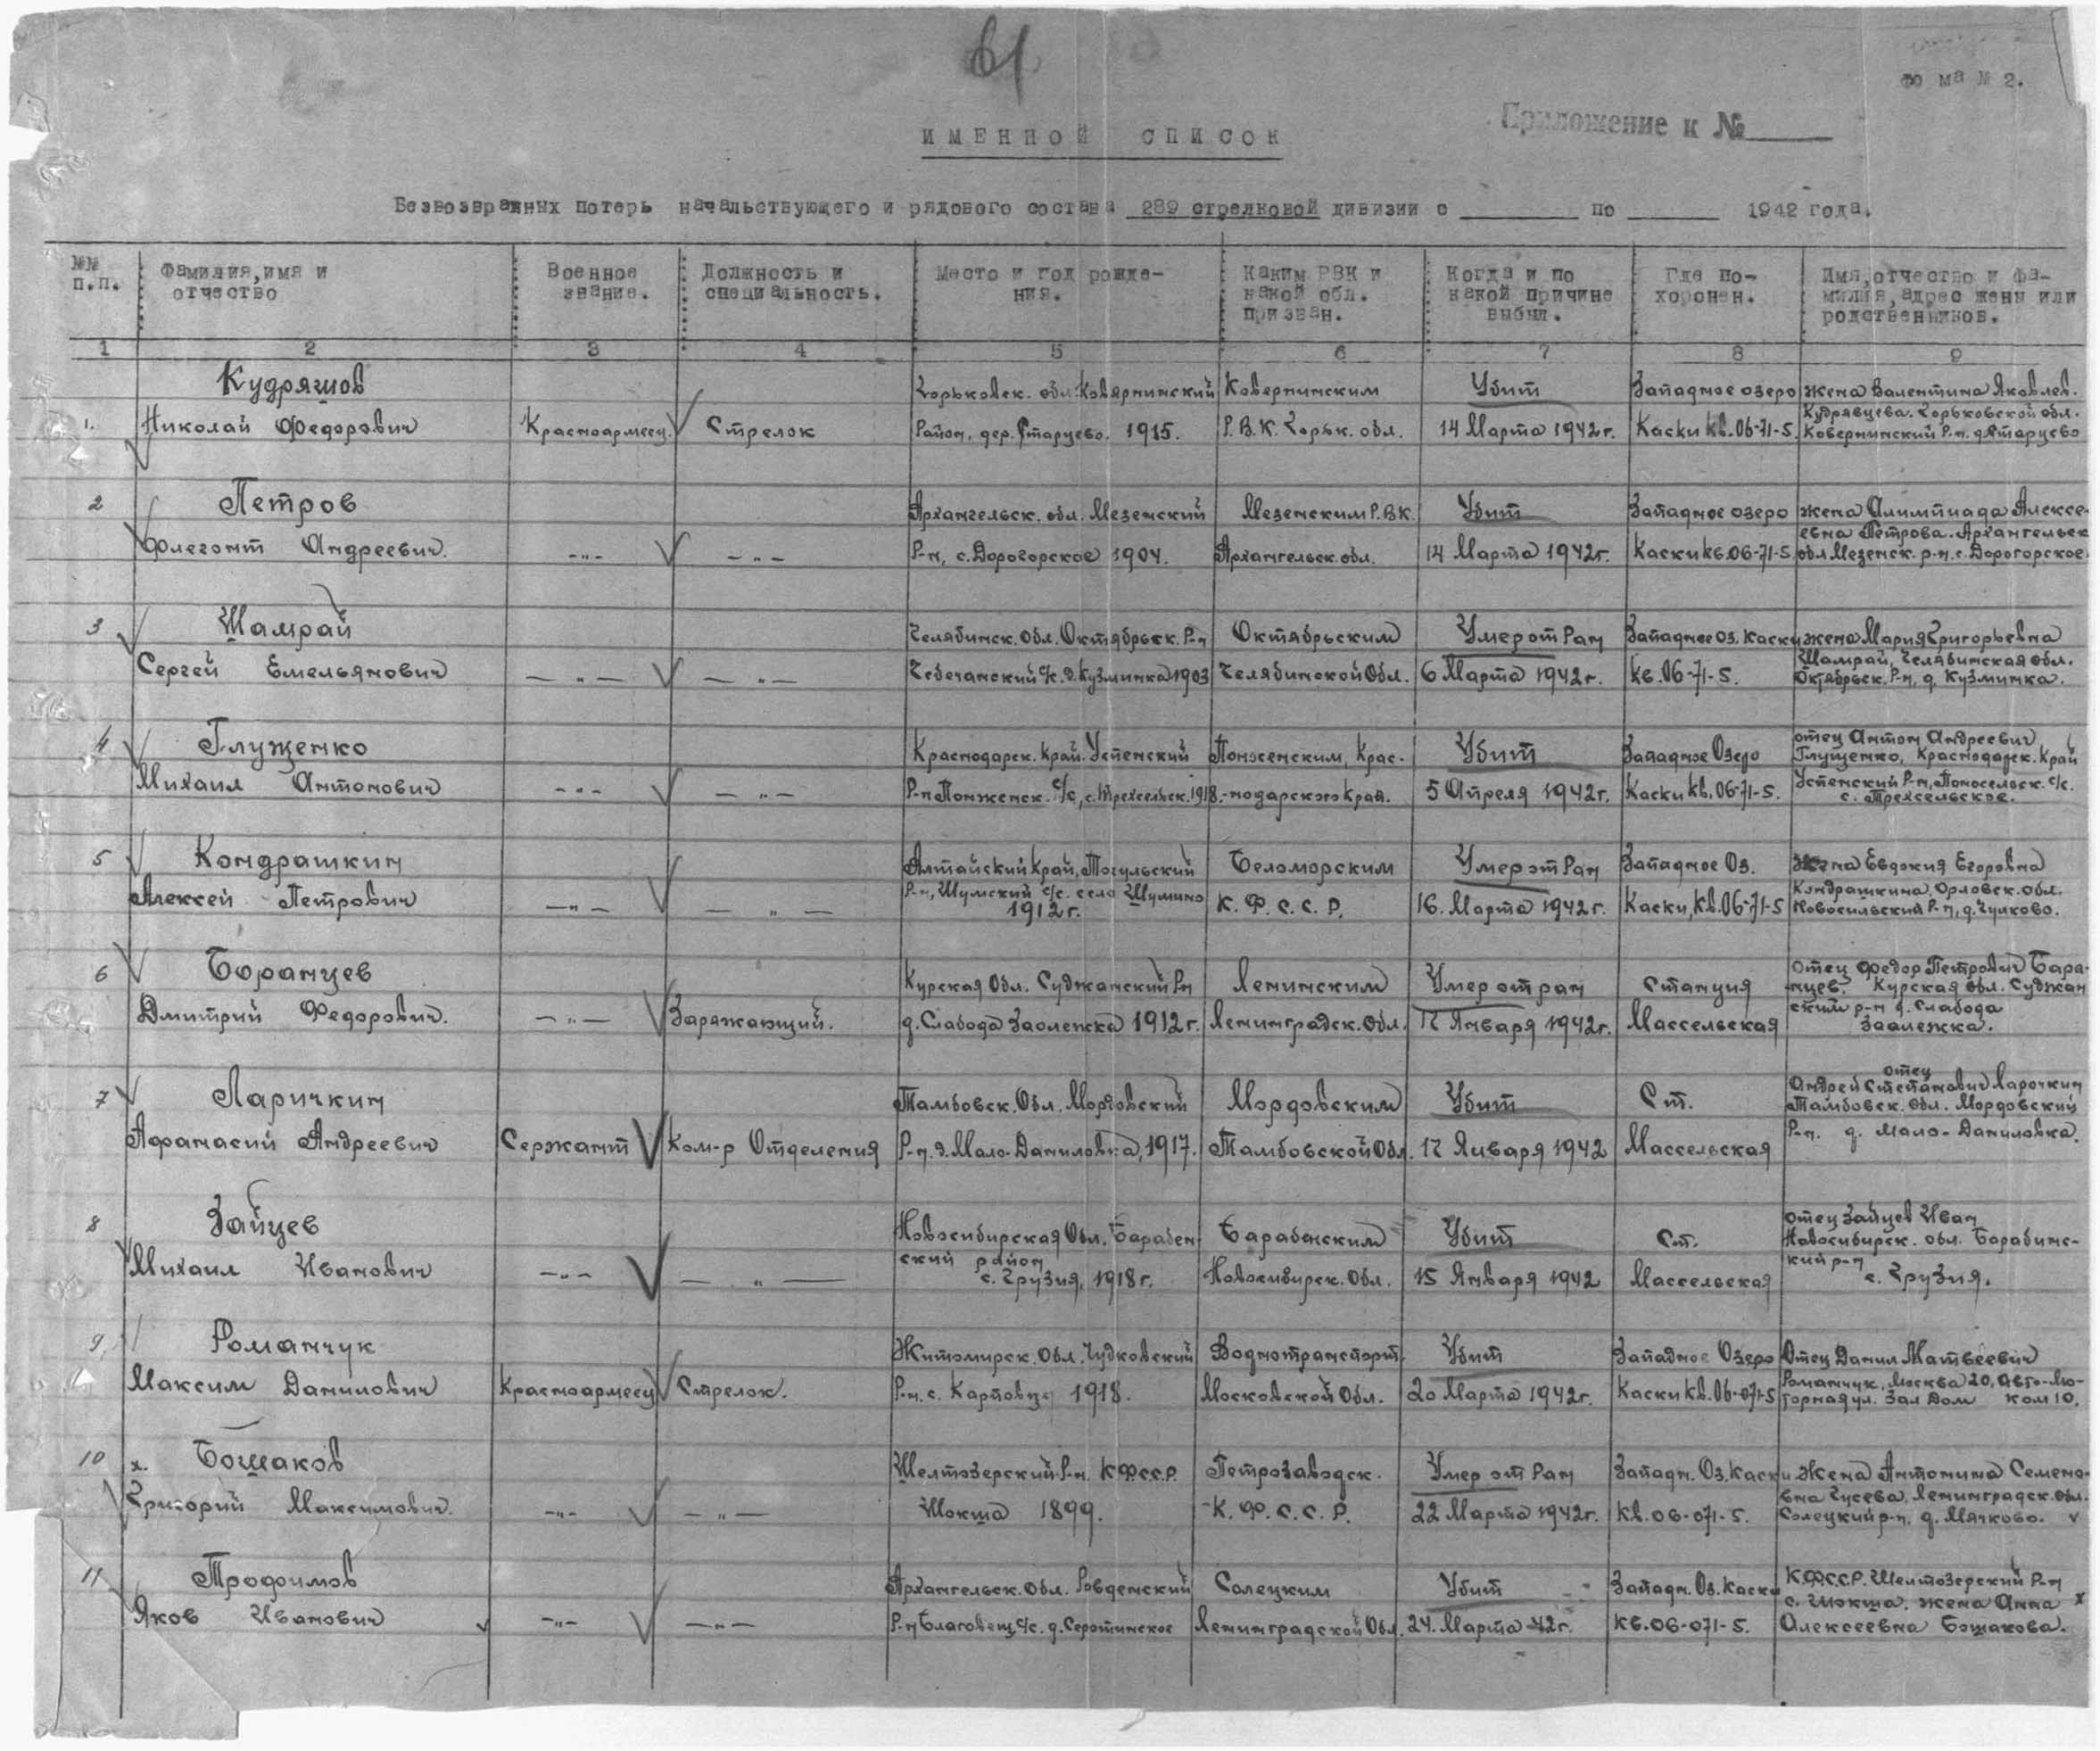 61
Фо ма № 2.
Приложение к №
ИМЕННОЙ СПИСОК
Безвозвратных потерь начальствующего и рядового состава 289 стрелковой дивизии с по 1942 года.
№№ п.п.
Фамилия, имя и отчество
Военное звание.
Должность и специальность.
Место и год рождения.
Каким РВК и какой обл. призван.
Когда и по какой причине выбыл.
Где похоронен.
Имя, отчество и фамилия, адрес жены или родственников.
1 2 3 4 5 6 7 8 9
Кудряшов Горьковск. обл. Ковернинский Ковернинским Убит Западное озеро жена Валентина Яковлев.
1. Николай Федорович Красноармеец. Стрелок Район, дер. Старцево. 1915. Р.В.К. Горьк. обл. 14 Марта 1942 г. Каски кв. 06-71-5. Кудрявцева. Горьковской обл.
Ковернинский Р-н. д. Старцево
2 Петров Архангельск. обл. Мезенский Мезенским Р.В.К. Убит Западное озеро жена Олимпиада Алексе-
евна Петрова. Архангельск
Флегонт Андреевич. -"- -"- Р-н, с. Дорогорское 1904. Архангельск. обл. 14 Марта 1942г. Каски кв. 06-71-5 обл. Мезенск. р-н. с. Дорогорское.
3 Шамрай Челябинск. Обл. Октябрьск. Р-н Октябрьским Умер от Ран Западное Оз. Каски жена Мария Григорьевна
Шамрай, Челябинская обл.
Сергей Емельянович -"- -"- с/с. д. Кузминка 1903 Челябинской Обл. 6 Марта 1942 г. кв. 06-71-5. Октябрьск. Р-н, д. Кузминка.
4 Глущенко Краснодарск. Край. Успенский Убит Западное Озеро отец Антон Андреевич
Глущенко, Краснодарск. Край
Михаил Антонович -"- -"- Р-н с/с, с. Трехсельск. 1918. -нодарского края. 5 Апреля 1942 г. Каски кв. 06-71-5. Успенский Р-н, с/с.
с. Трехсельское.
5 Кондрашкин Алтайский Край, Тогульский Беломорским Умер от Ран Западное Оз. жена Евдокия Егоровна
Алексей Петрович -"- -"- Р-н, Шумский с/с. село Шумино К. Ф. С. С. Р. 16. Марта 1942 г. Каски, кв. 06-71-5 Кондрашкина, Орловск. обл.
1912 г. Новосильский Р-н, д. Чулково.
6 Боранцев Курская Обл. Суджанский Р-н Ленинским Умер от ран Станция отец Федор Петрович Бара-
нцев. Курская обл. Суджан
Дмитрий Федорович. -"- Заряжающий. д. Слабода Заолежка 1912 г. Ленинградск. Обл. 17 Января 1942 г. Массельская ским р-н д. Слабода
Заолежка.
7 Ларичкин Тамбовск. Обл. Мордовский Мордовским Убит Ст. отец
Андрей Степанович Ларочкин
Тамбовск. обл. Мордовский
Афанасий Андреевич Сержант Ком-р Отделения Р-н. д. Мало-Даниловка, 1917. Тамбовской Обл. 17 Января 1942 Массельская Р-н. д. Мало-Даниловка.
8 Зайцев Новосибирская Обл. Барабен- Барабенским Убит Ст. отец Зайцев Иван
ский район Новосибирск. обл. Барабинс-
Михаил Иванович -"- -"- с. Грузия, 1918 г. Новосибирск. Обл. 15 Января 1942 Массельская кий р-н
с. Грузия.
9 Романчук Житомирск. Обл. Чудновский Воднотранспорт. Убит Западное Озеро Отец Данил Матвеевич
Максим Данилович Красноармеец Стрелок. Р-н. с. Карповцы 1918. Московской Обл. 20 Марта 1942 г. Каски кв. 06-071-5 Романчук, Москва 20, Авто-Мо-
торная ул. 3ая Дом ком 10.
10 х. Бошаков Шелтозерский Р-н. КФССР. Петрозаводск. Умер от Ран Западн. Оз. Каски Жена Антонина Семено-
вна Гусева, Ленинградск. обл.
Григорий Максимович. -"- -"- Шокша 1899. К. Ф. С. С. Р. 22 Марта 1942г. кв. 06-071-5. Солецкий р-н. д. Мячково. v
11 Трофимов Архангельск. Обл. Ровденский Солецким Убит Западн. Оз. Каски К.Ф.С.С.Р. Шелтозерский Р-н
с. Шокша. жена Анна х
Яков Иванович -"- -"- Р-н Благовещ. с/с. д. Ленинградской Обл. 24. Марта 42 г. кв. 06-071-5. Алексеевна Бошакова.